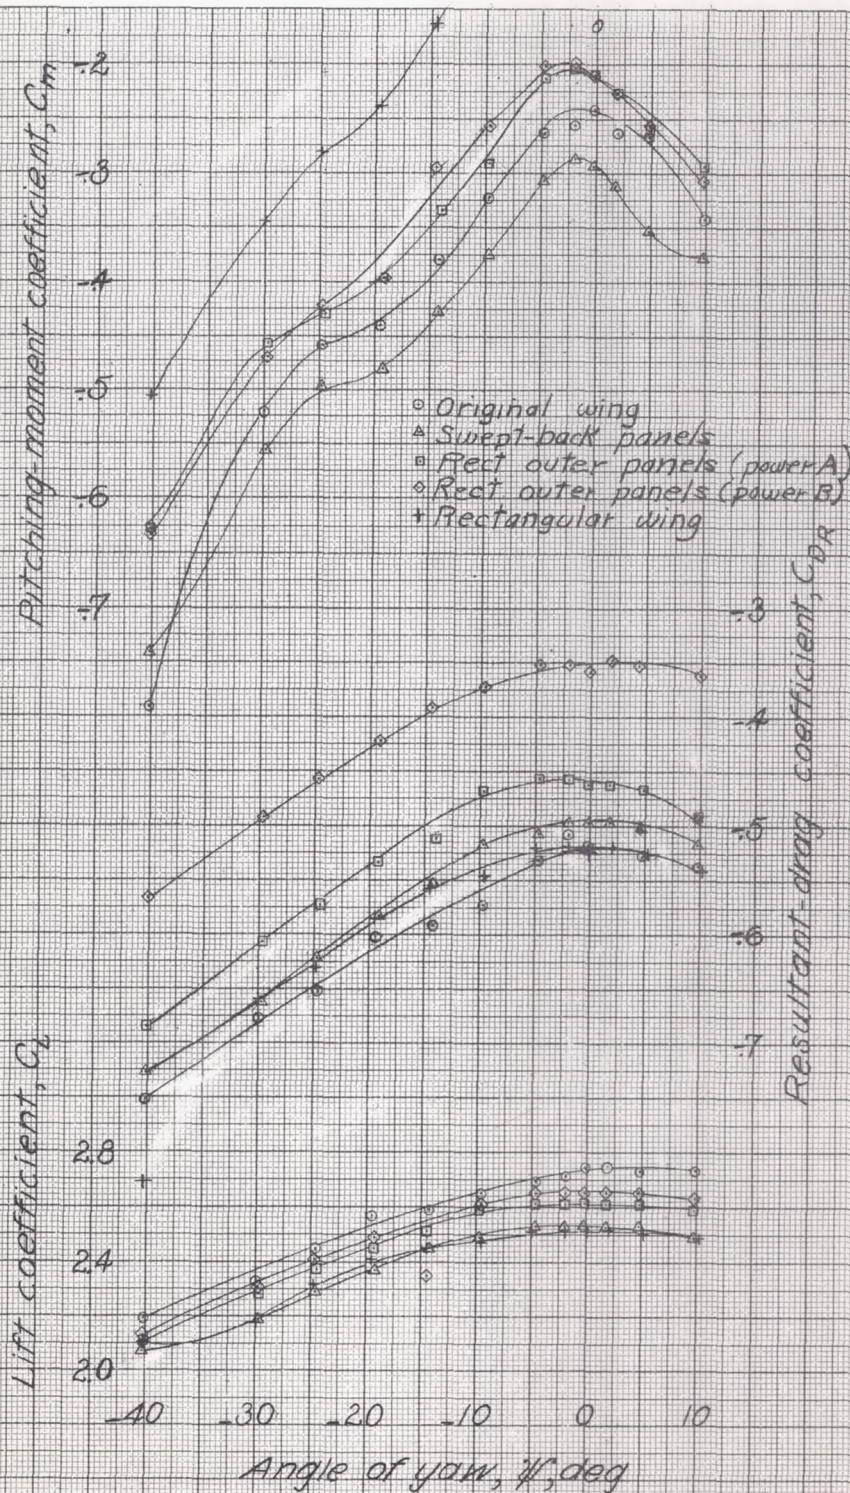 Pitching-moment coefficient, Cm
-.2
-.3
-.4
-.5
-.6
-.7
○ Original wing
△ Swept-back panels
□ Rect outer panels (power A)
◇ Rect outer panels (power B)
+ Rectangular wing
Resultant-drag coefficient, CDR
-.3
-.4
-.5
-.6
-.7
Lift coefficient, CL
2.8
2.4
2.0
-40 -30 -20 -10 0 10
Angle of yaw, ψ, deg